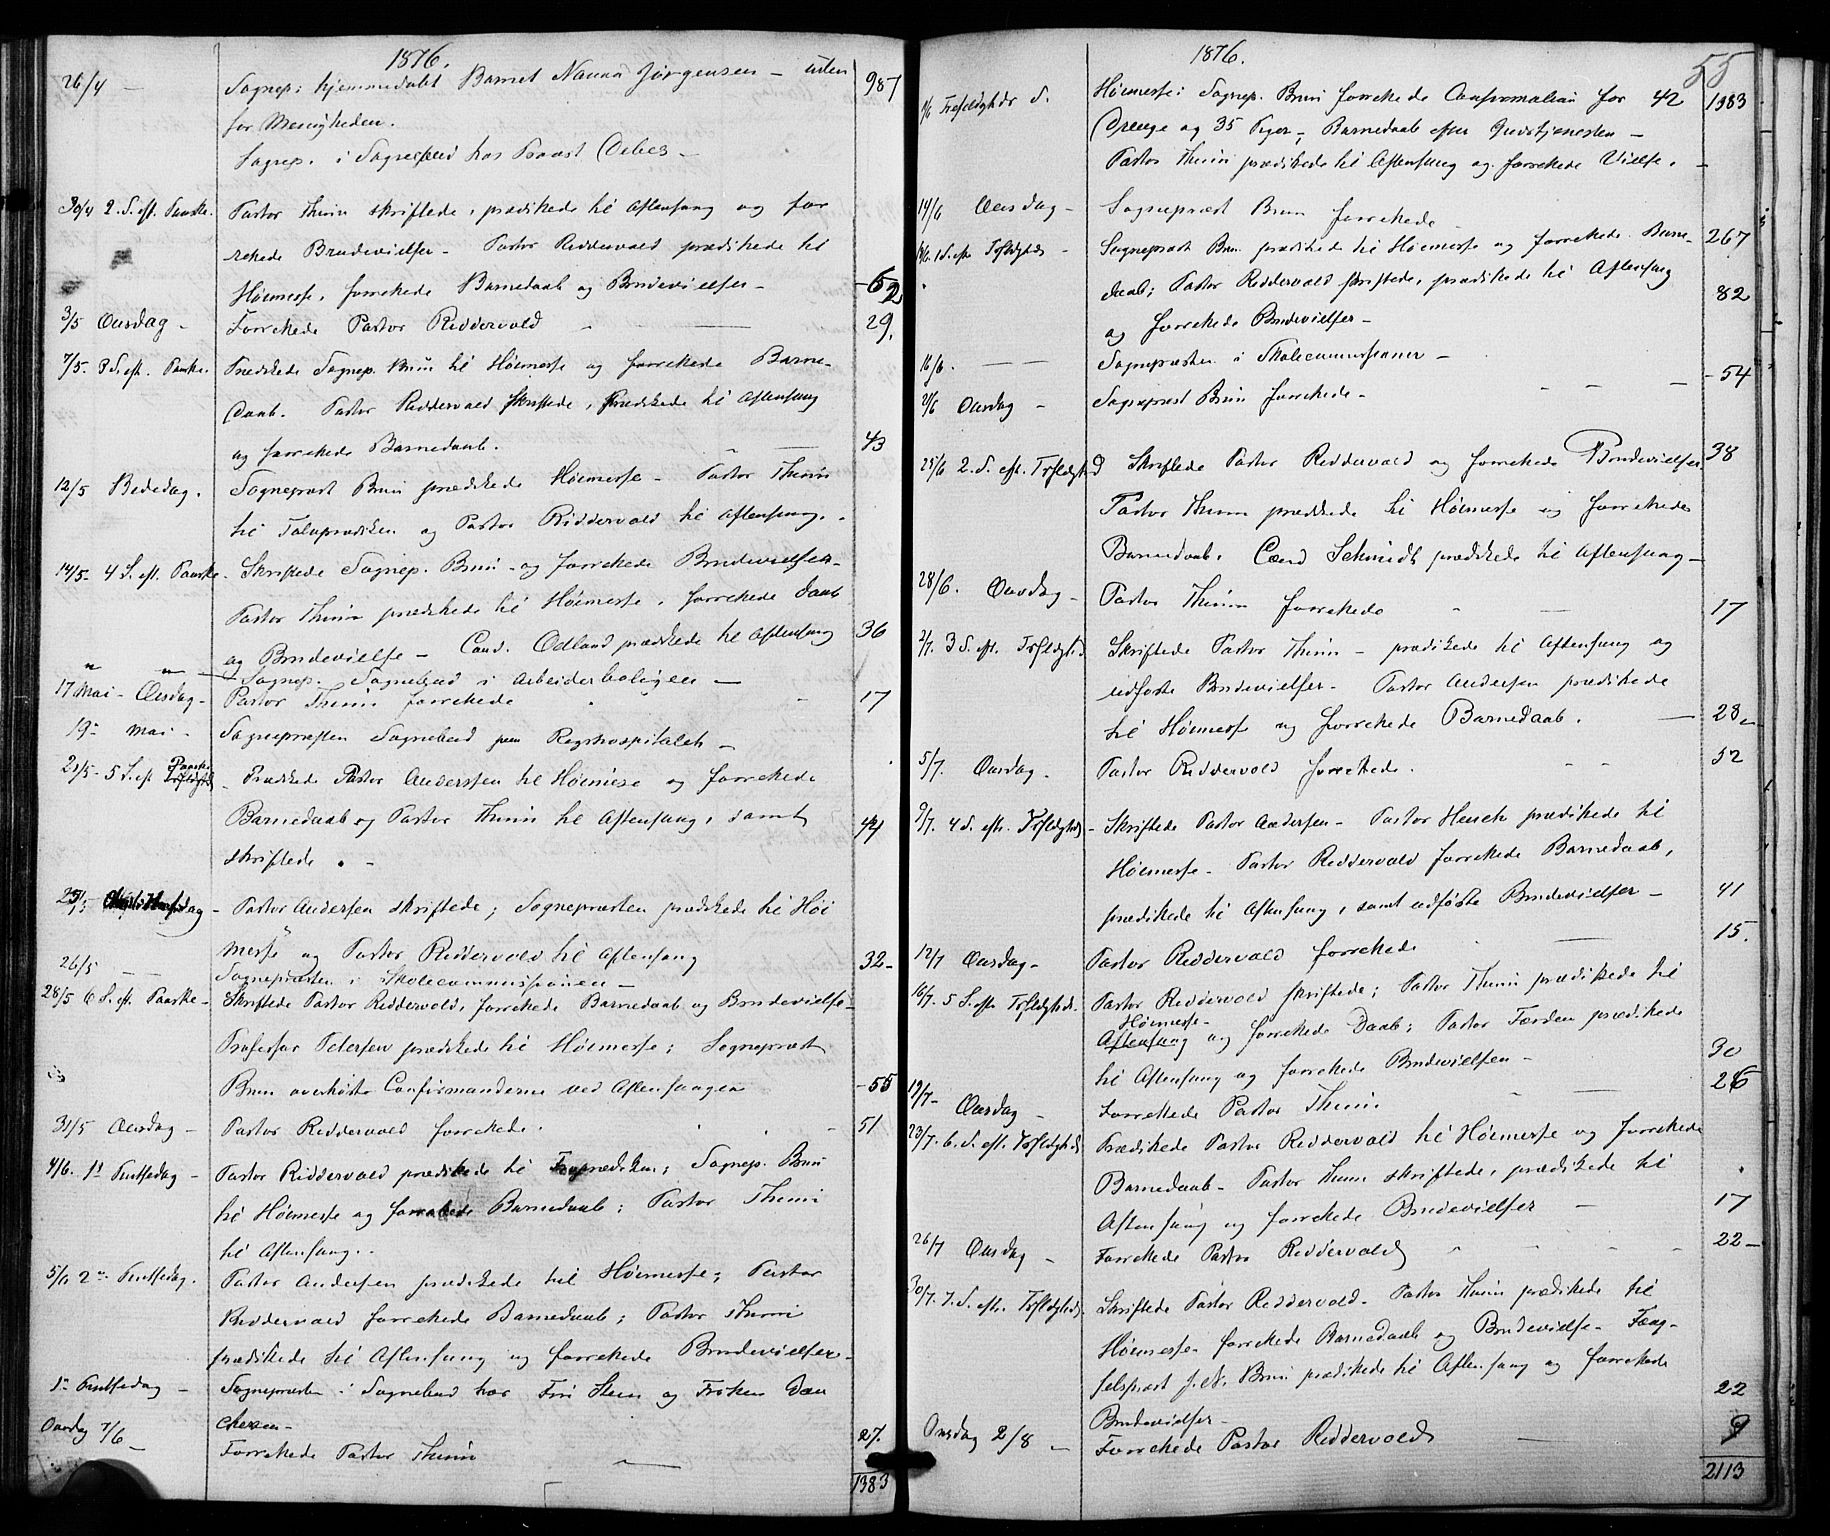 1876.
26/4 - Sognep: hjemmedøbt Barnet Nanna Jørgensen - uden 987
for Menigheden.
Sognep. i Sognebud hos Provst Debes -
30/4 2. S. eft. Paaske. Pastor Thinn skriftede, prædikede til Aftensang og for
rettede Brudevielser - Pastor Riddervold prædikede til
Høimesse, forrettede Barnedaab og Brudevielser - - 62
3/5 Onsdag - Forrettede Pastor Riddervold - 29.
7/5 - 3 S. eft. Paaske. Prædikede Sognep. Brun til Høimesse og forrettede Barne-
Daab. Pastor Riddervold skriftede, prædikede til Aftensang
og forrettede Barnedaab. 43
12/5 Bededag. Sognepræst Brun prædikede Høimesse - Pastor Thinn
til Toluprædiken og Pastor Riddervold til Aftensang.
14/5 - 4 S. eft. Paaske. Skriftede Sognep. Brun - og forrettede Brudevielser -
Pastor Thinn prædikede til Høimesse, forrettede Daab
og Brudevielse - Cand. Odland prædikede til Aftensang 36
" " - Sognep. Sognebud i Arbeiderboligen -
17 Mai - Onsdag - Pastor Thinn forrettede 17
19 - Mai - Sognepræsten Sognebud paa Rigshospitalet -
21/5 - 5 S. eft Paaske - Prædikede Pastor Anderssen til Høimesse og forrettede
Barnedaab og Pastor Thinn til Aftensang, samt 44
skriftede. -
25/5 Christi Himfdag - Pastor Andersen skriftede; Sognepræsten prædikede til Høi
messe og Pastor Riddervold til Aftensang 32 -
26/5 - - Sognepræsten i Skolecommissionen -
28/5 6 S. eft. Paaske - Skriftede Pastor Riddervold, forrettede Barnedaab og Brudevielse -
Professor Petersen prædikede til Høimesse; Sognepræst
Brun overhørte Confirmanderne ved Aftensangen - 55
31/5 Onsdag - Pastor Riddervold forrettede. 51
4/6. 1ste Pintsedag - Pastor Riddervold prædikede til Froprædiken; Sognep. Brun
til Høimesse og forrettede Barnedaab; Pastor Thinn
til Aftensang.
5/6 2den Pintsedag. Pastor Andersen prædikede til Høimesse; Pastor
Riddervold forrettede Barnedaab; Pastor Thinn
prædikede til Aftensang og forrettede Brudevielser -
1ste Pintsedag - Sognepræsten i Sognebud hos Fru Steen og Frøken Dan
chersen -
Onsdag 7/6 - Forrettede Pastor Thinn - 27.
1383
1876. 55
Trefoldigheds S. Høimesse: Sognep. Brun forrettede Confirmation for 42 1383
Drenge og 35 Piger; Barnedaab efter Gudstjenesten -
Pastor Thinn prædikede til Aftensang og forrettede Vielse. -
14/6 Onsdag - Sognepræst Brun forrettede
1 S. eft Trefoldighed - Sognepræst Brun prædikede til Høimesse og forrettede Barne- 267
daab; Pastor Riddervold skriftede, prædikede til Aftensang 82
og forrettede Brudevielser -
16/6. - Sognepræsten i Skolecommissionen -
21/6 Onsdag - Sognepræst Brun forrettede - - 54
25/6 2. S. eft. Trefoldighed Skriftede Pastor Riddervold og forrettede Brudevielser 38
Pastor Thinn prædikede til Høimesse og forrettede
Barnedaab. Cand Schmidt prædikede til Aftensang -
28/6. Onsdag - Pastor Thinn forrettede - 17
2/7. 3 S. eft. Trefoldighed Skriftede Pastor Thinn - prædikede til Aftensang og
udførte Brudevielser - Pastor Andersen prædikede
til Høimesse og forrettede Barnedaab. - 28 -
5/7. Onsdag. Pastor Riddervold forrettede. - - 52
9/7. 4 S. eftr. Trefoldigheds - Skriftede Pastor Andersen - Pastor Heuch prædikede til
Høimesse - Pastor Riddervold forrettede Barnedaab,
prædikede til Aftensang, samt udførte Brudevielser - 41
12/7 Onsdag - Pastor Riddervold forrettede - 15.
16/7. 5 S. eft Trefoldigheds. Pastor Riddervold skriftede; Pastor Thinn prædikede til
Høimesse -
Aftensang og forrettede Daab; Pastor Færden prædikede
til Aftensang og forrettede Brudevielsen - 30
19/7 - Onsdag - Forrettede Pastor Thinn 26
23/7. 6. S. eft. Trefoldigheds Prædikede Pastor Riddervold til Høimesse og forrettede
Barnedaab - Pastor Thinn skriftede, prædikede til
Aftensang og forrettede Brudevielser - 17
26/7 Onsdag - Forrettede Pastor Riddervold 22 -
30/7. 7. S. eftr. Trefoldigheds Skriftede Pastor Riddervold - Pastor Thinn prædikede til
Høimesse - forrettede Barnedaab og Brudevielse - Fæng-
selspræst J. N. Brun prædikede til Aftensang og forrettede 22
Brudevielser -
Onsdag 2/8 - Forrettede Pastor Riddervold - 9
2113